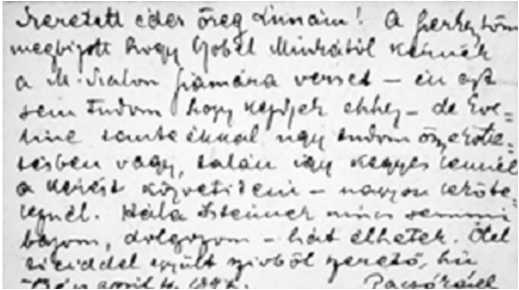 Szeretett édes öreg Linsám! A szerkesztőm
megbizott hogy Gobel Minkától kérnék
a M. Szalon számára verset – én azt
sem tudom hogy kezdjek ehhez – de Eve=
line tantoékkal úgy tudom összekötte=
tésben vagy, talán így kegyes lennél
a kérést közvetíteni – nagyon lekötö=
leznél. Hála Istennek nincs semmi
bajom, dolgozom – hát élhetek. Ölel
tieiddel együtt szívből szerető, hű
april 4. 189